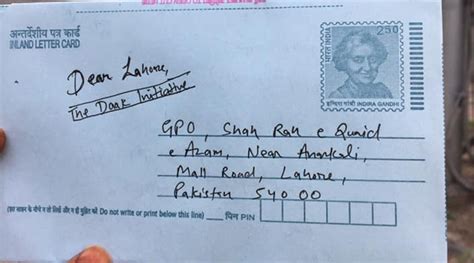 अन्तर्देशीय पत्र कार्ड
INLAND LETTER CARD
भारत INDIA
2.50
इन्दिरा गांधी INDIRA GANDHI
Dear Lahore,
The Daak Initiative
GPO, Shah Rah e Quaid
e Azam, Near Anarkali,
Mall Road, Lahore,
Pakistan 54000
(इस लाइन के नीचे न तो लिखें और न ही मुद्रित करें Do not write or print below this line)
पिन PIN